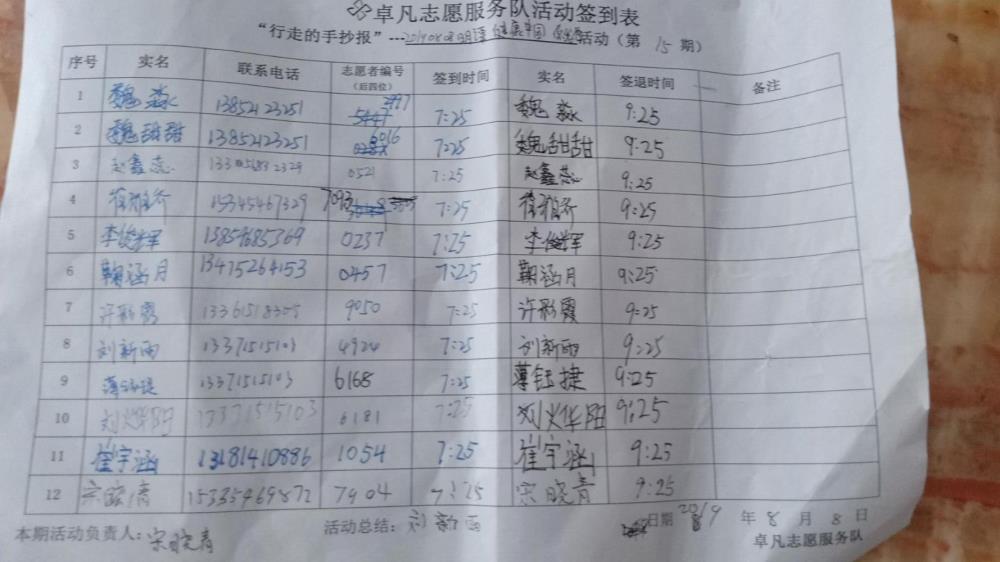 卓凡志愿服务队活动签到表
“行走的手抄报”---20190808 健康中国 活动（第 15 期）
序号 实名 联系电话 志愿者编号（后四位） 签到时间 实名 签退时间 备注
1 魏淼 13852123251 7:25 魏淼 9:25
2 魏甜甜 13852123251 6016 7:25 魏甜甜 9:25
3 赵鑫蕊 0521 7:25 赵鑫蕊 9:25
4 15345467329 7093 7:25 9:25
5 李俊辉 13854685369 0237 7:25 李俊辉 9:25
6 鞠涵月 13475264153 0457 7:25 鞠涵月 9:25
7 许彩霞 13361518305 9050 7:25 许彩霞 9:25
8 刘新雨 13371515103 4924 7:25 刘新雨 9:25
9 13371515103 6168 7:25 薄钰捷 9:25
10 刘火华阳 13371515103 6181 7:25 刘火华阳 9:25
11 崔宇涵 13181410886 1054 7:25 崔宇涵 9:25
12 宋晓青 15335469872 7904 7:25 宋晓青 9:25
本期活动负责人：宋晓青 活动总结：刘新雨 日期 2019 年 8 月 8 日
卓凡志愿服务队